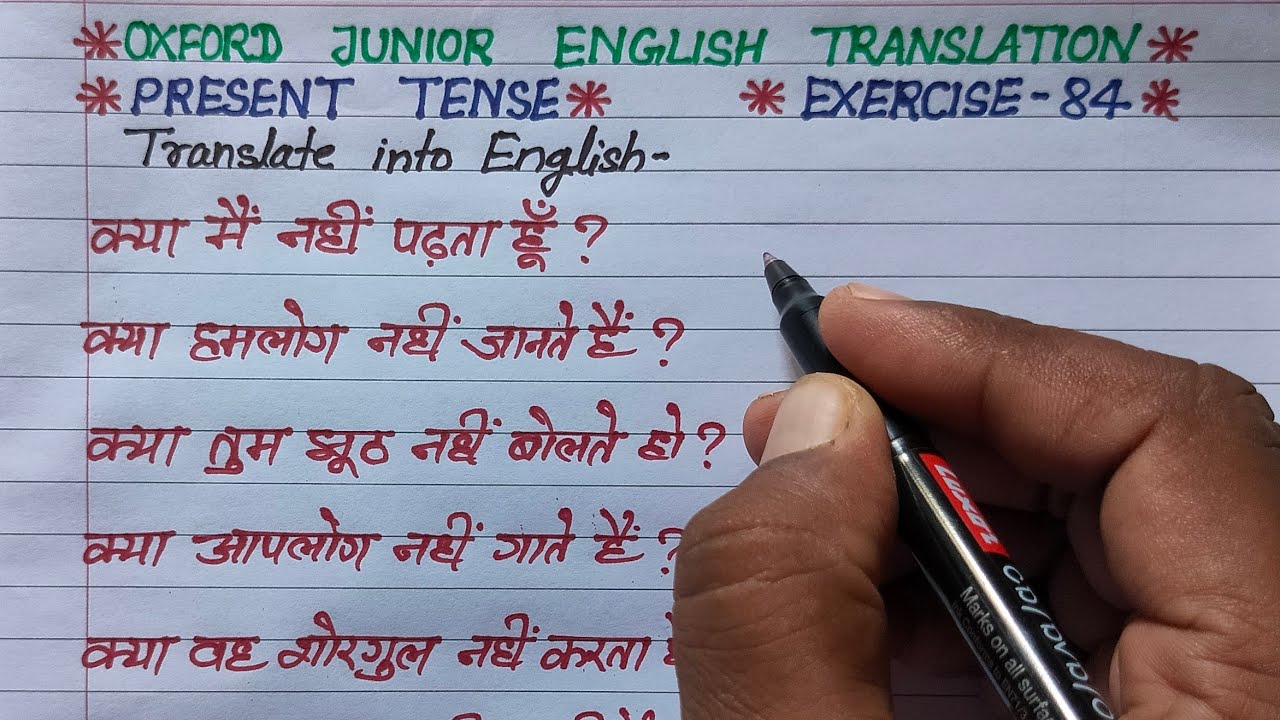 *OXFORD JUNIOR ENGLISH TRANSLATION*
*PRESENT TENSE* *EXERCISE-84*
Translate into English-
क्या मैं नहीं पढ़ता हूँ ?
क्या हमलोग नहीं जानते हैं ?
क्या तुम झूठ नहीं बोलते हो ?
क्या आपलोग नहीं गाते हैं ?
क्या वह शोरगुल नहीं करता
LUXOR
Marks on all